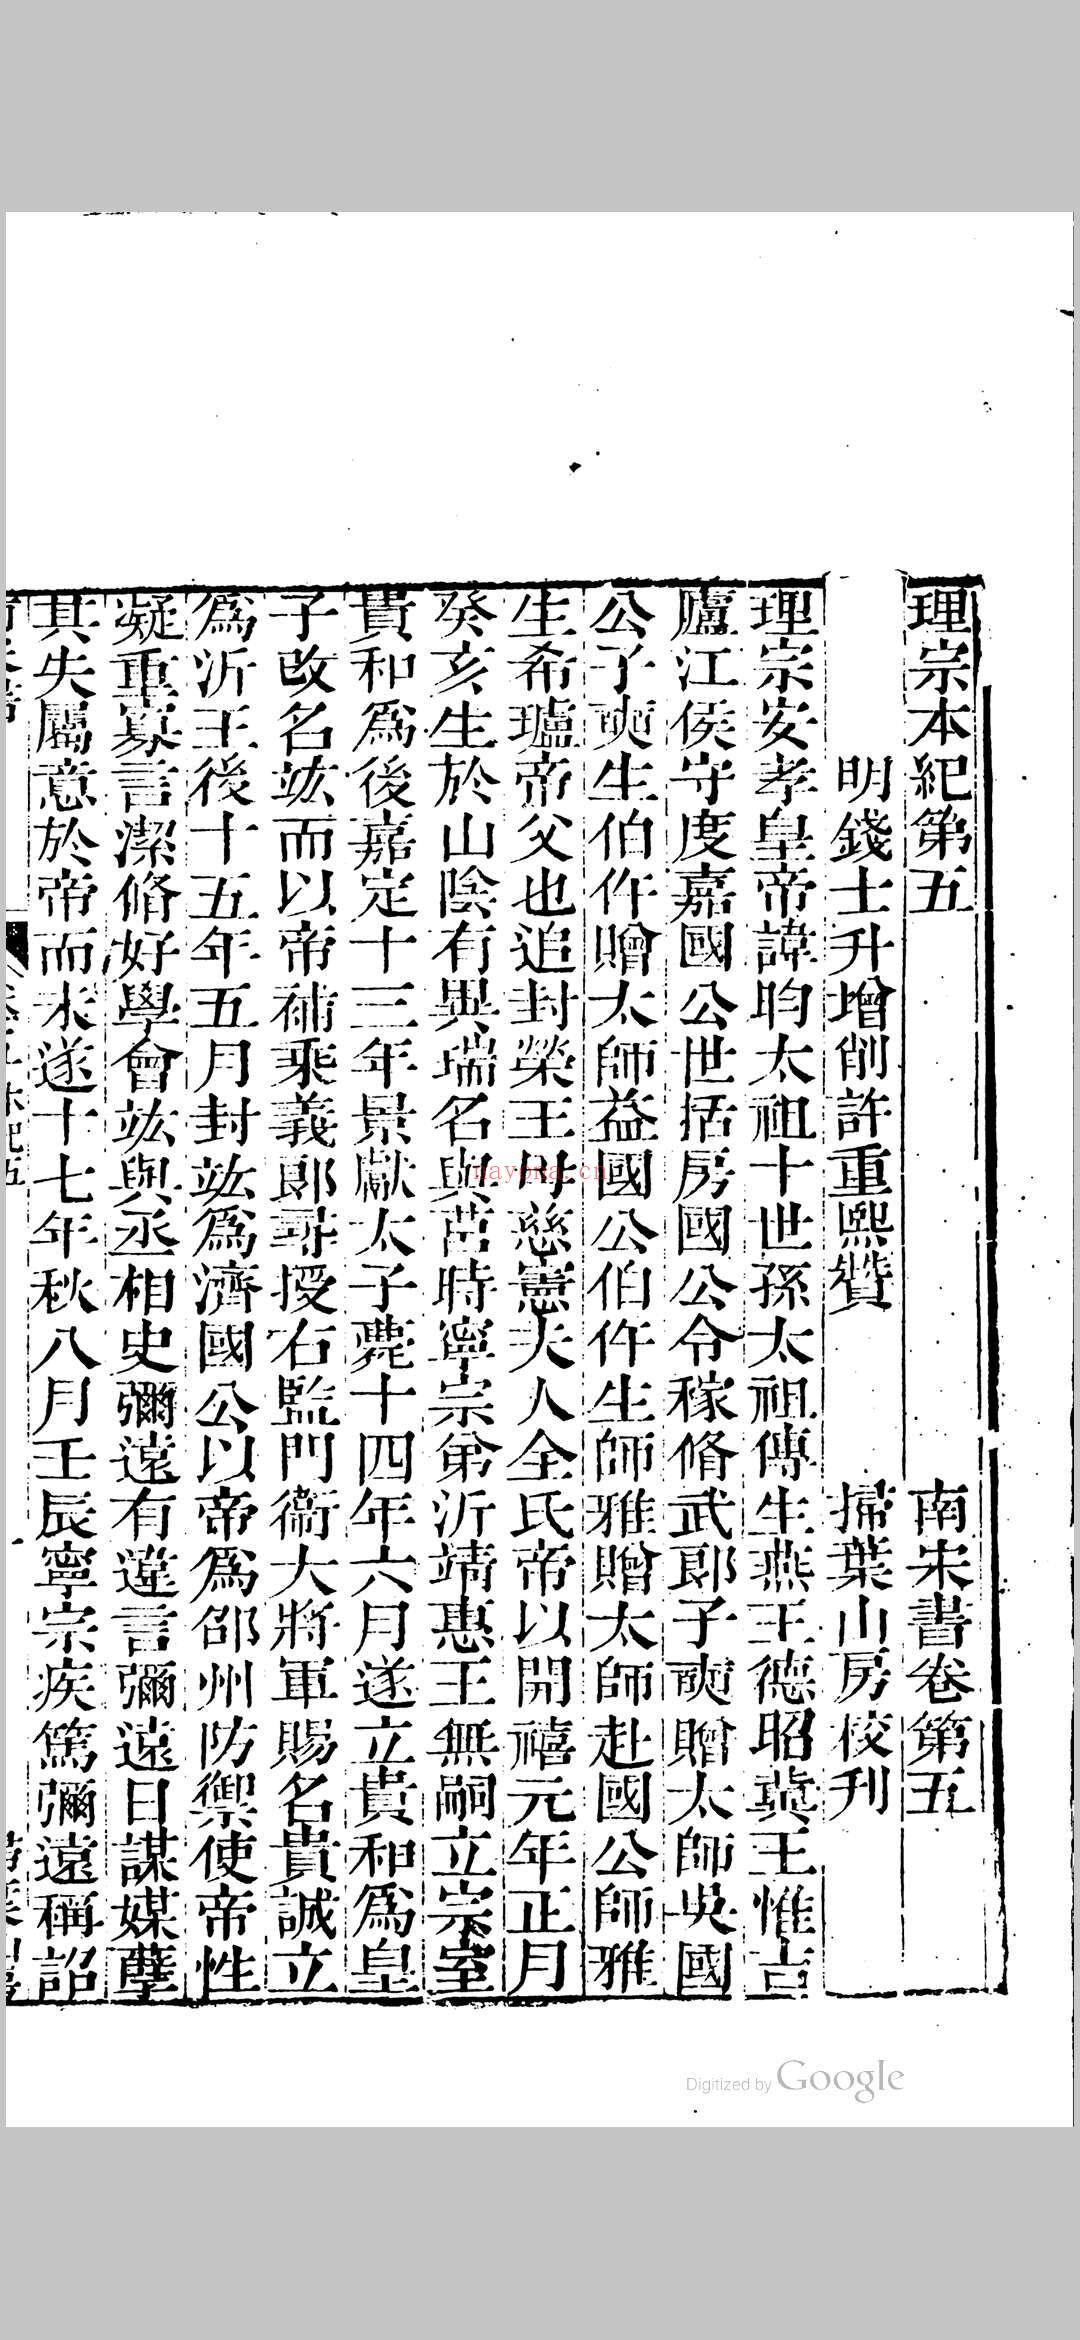 理宗本紀第五　南宋書卷第五
明錢士升增削許重熙贊　掃葉山房校刊
理宗安孝皇帝諱昀太祖十世孫太祖傳生燕王德昭冀王惟吉
廬江侯守度嘉國公世括房國公令稼脩武郎子奭贈太師吳國
公子奭生伯仵贈太師益國公伯仵生師雅贈太師赴國公師雅
生希瓐帝父也追封榮王母慈憲夫人全氏帝以開禧元年正月
癸亥生於山陰有異瑞名與莒時寧宗弟沂靖惠王無嗣立宗室
貴和爲後嘉定十三年景獻太子薨十四年六月遂立貴和爲皇
子改名竑而以帝補秉義郎尋授右監門衞大將軍賜名貴誠立
爲沂王後十五年五月封竑爲濟國公以帝爲邵州防禦使帝性
凝重寡言潔脩好學會竑與丞相史彌遠有違言彌遠日謀媒孽
其失屬意於帝而未遂十七年秋八月壬辰寧宗疾篤彌遠稱詔
nayona.cn
Digitized by Google